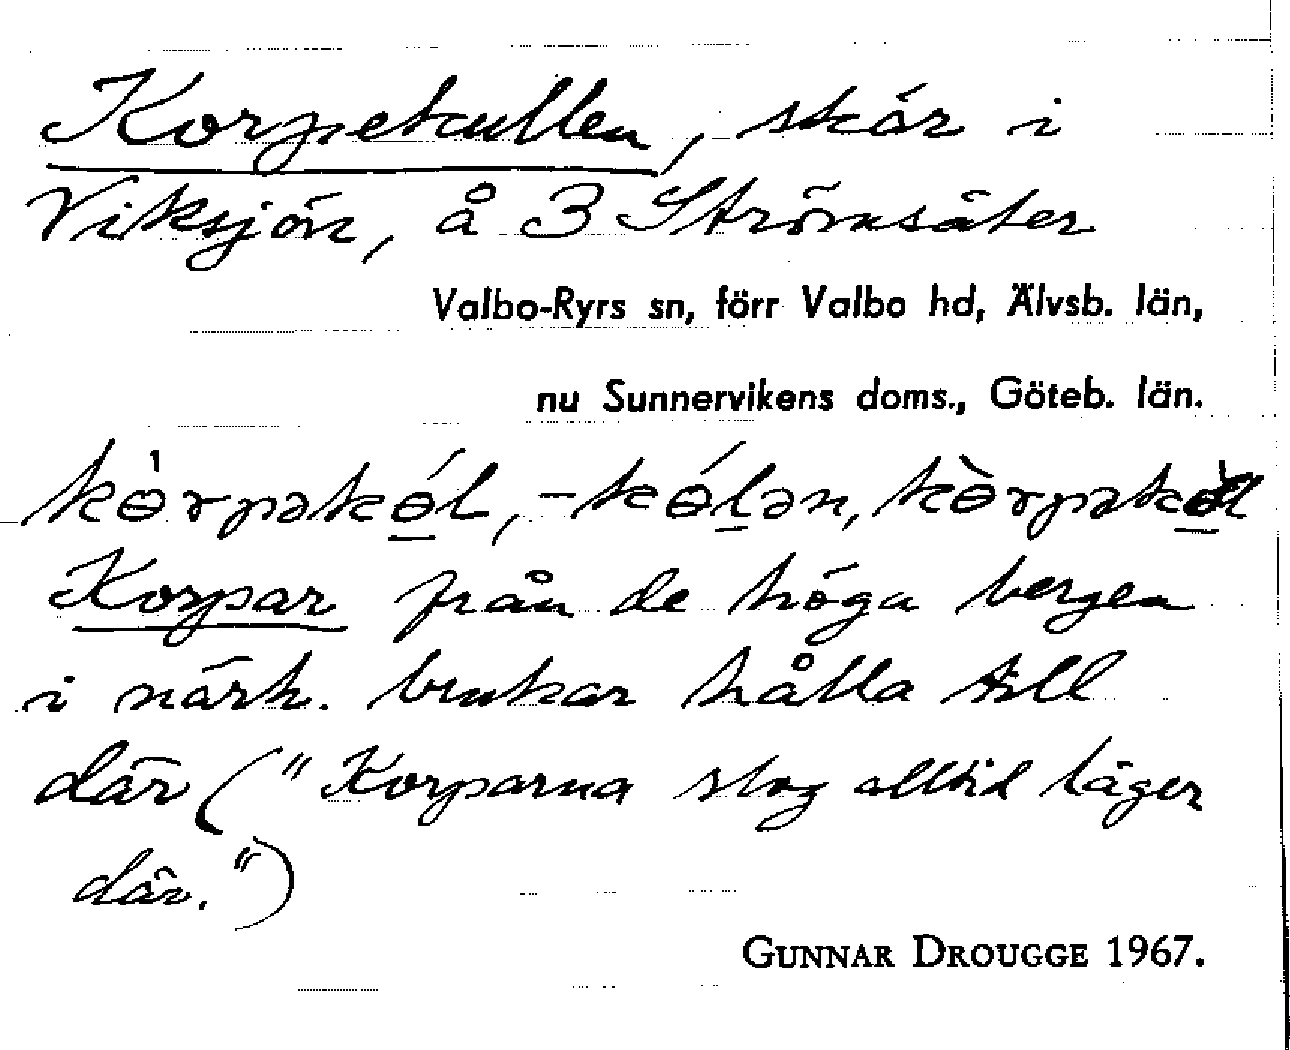 Korpekullen, skär i
Viksjön, å 3 Strömsäter
Valbo-Ryrs sn, förr Valbo hd, Älvsb. län,
nu Sunnervikens doms., Göteb. län.
kɵ̀rpəkɵ́l, -kɵ́lən, kɵ̀rpəkɵl
Korpar från de höga bergen
i närh. brukar hålla till
där ("Korparna slog alltid läger
där.")
GUNNAR DROUGGE 1967.